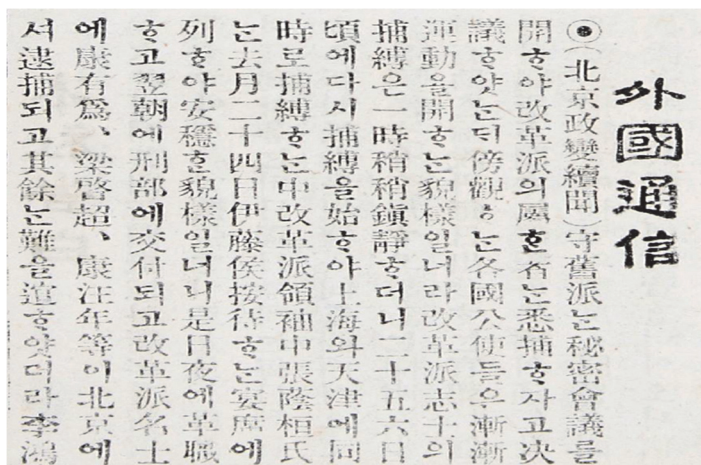 外國通信
◉(北京政變續聞 守舊派ᄂᆞᆫ秘密會議를
開ᄒᆞ야改革派의屬ᄒᆞᆫ者ᄂᆞᆫ悉捕ᄒᆞ자고决
議ᄒᆞ얏ᄂᆞᆫᄃᆡ傍觀ᄒᆞᄂᆞᆫ各國公使들은漸漸
運動을開ᄒᆞᄂᆞᆫ貌樣일너라改革派志士의
捕縛은一時稍稍鎭靜ᄒᆞ더니二十五六日
頃에다시捕縛을始ᄒᆞ야上海와天津에同
時로捕縛ᄒᆞᄂᆞᆫ中改革派領袖中張蔭桓氏
ᄂᆞᆫ去月二十四日伊藤侯接待ᄒᆞᄂᆞᆫ宴席에
列ᄒᆞ야安穩ᄒᆞᆫ貌樣일너니是日夜에革職
ᄒᆞ고翌朝에刑部에交付되고改革派名士
에康有爲、梁啓超、康汪年等이北京에
셔逮捕되고其餘ᄂᆞᆫ難을逭ᄒᆞ얏더라李鴻